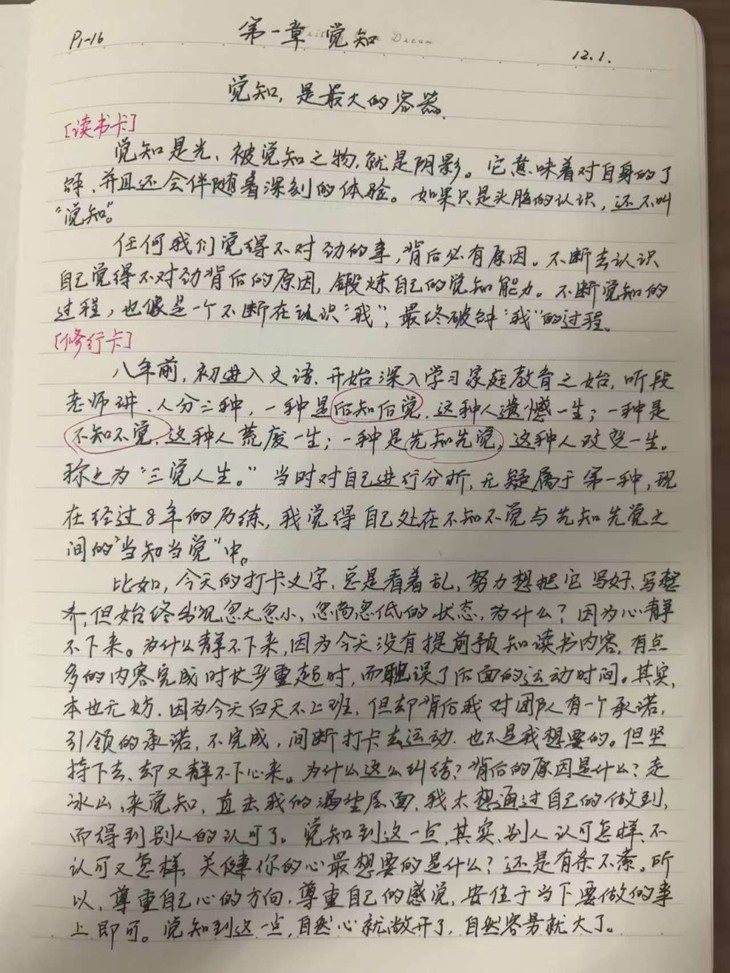 P1-16 第一章 觉知 12.1.
觉知，是最大的容器。
[读书卡]
觉知是光，被觉知之物，就是阴影。它意味着对自身的了
解，并且还会伴随着深刻的体验。如果只是头脑的认识，还不叫
“觉知”。
任何我们觉得不对劲的事，背后必有原因。不断去认识
自己觉得不对劲背后的原因，锻炼自己的觉知能力。不断觉知的
过程，也像是一个不断在认识“我”，最终破解“我”的过程。
[修行卡]
八年前，初进入文语，开始深入学习家庭教育之始，听段
老师讲，人分三种，一种是后知后觉，这种人遗憾一生；一种是
不知不觉，这种人荒废一生；一种是先知先觉，这种人改变一生。
称之为“三觉人生。”当时对自己进行分析，无疑属于第一种，现
在经过8年的历练，我觉得自己处在不知不觉与先知先觉之
间的“当知当觉”中。
比如，今天的打卡文字，总是看着乱，努力想把它写好、写整
齐，但始终出现忽大忽小，忽高忽低的状态，为什么？因为心静
不下来。为什么静不下来，因为今天没有提前预知读书内容，有点
多的内容完成时长严重超时，而耽误了后面的运动时间。其实，
本也无妨，因为今天白天不上班，但却背后我对团队有一个承诺，
引领的承诺，不完成，间断打卡去运动，也不是我想要的。但坚
持下去，却又静不下心来。为什么这么纠结？背后的原因是什么？走
冰山，来觉知，直击我的渴望层面，我太想通过自己的做到，
而得到别人的认可了。觉知到这一点，其实，别人认可怎样，不
认可又怎样，关健你的心最想要的是什么？还是有条不紊。所
以，尊重自己心的方向，尊重自己的感觉，安住于当下要做的事
上即可。觉知到这一点，自然心就敞开了，自然容器就大了。